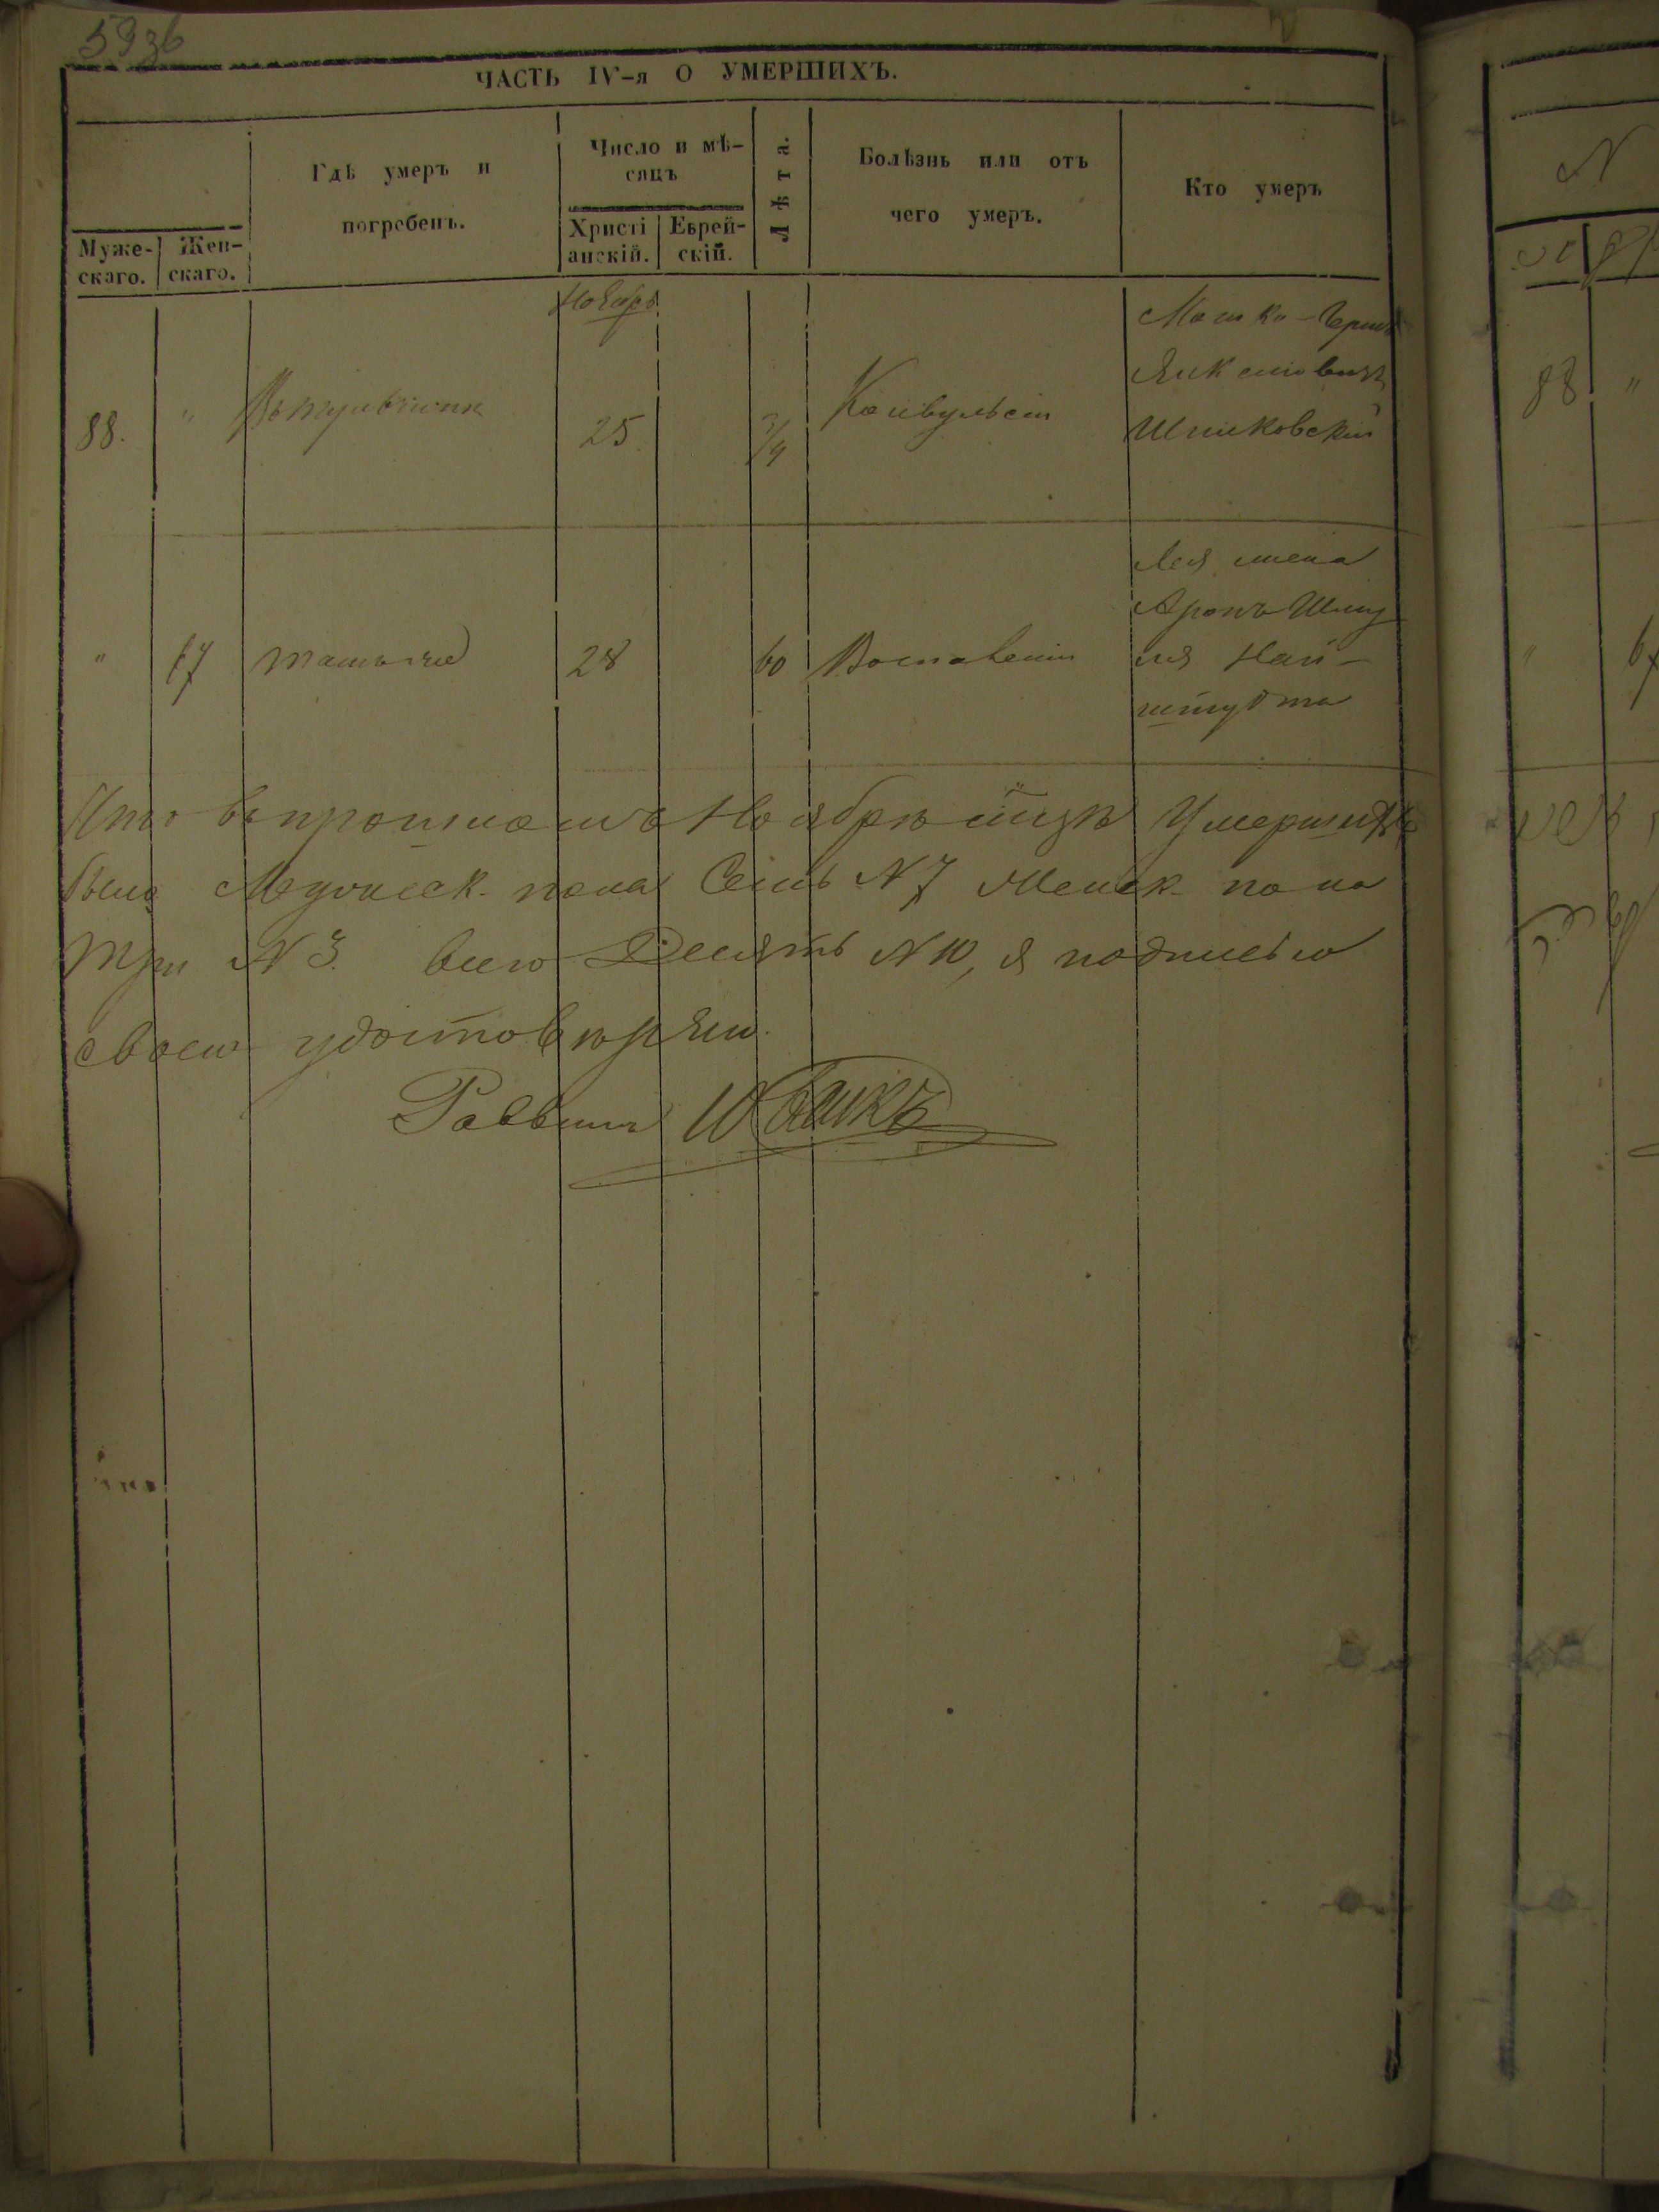 593б
ЧАСТЬ IV-я О УМЕРШИХЪ.
Муже-
скаго.
Жен-
скаго.
Гдѣ умеръ и
погребенъ.
Число и мѣ-
сяцъ
Христі
анскій.
Еврей-
скій.
Лѣта.
Болѣзнь или отъ
чего умеръ.
Кто умеръ
Ноябрь
88. " Въ Тульчинѣ 25 3/4 Конвульсіи
Мошко-Герш
Янкеліовичъ
Шпиковскій
" 67 тамъ же 28 60
Лея жена
Аронъ Шму
ля Най-
штудта
Что въ прошломъ Ноябрѣ мцѣ Умершихъ
было Мужеск. пола Семь N 7 Женск. пола
три N 3. всего Десять N 10, я подписью
своею удостовѣряю.
Раввинъ
88 "
" 67